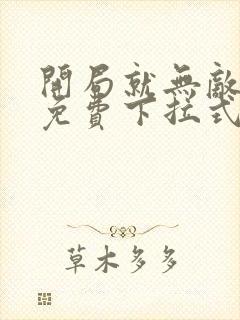 開局就無敵
免費下拉式
草木多多